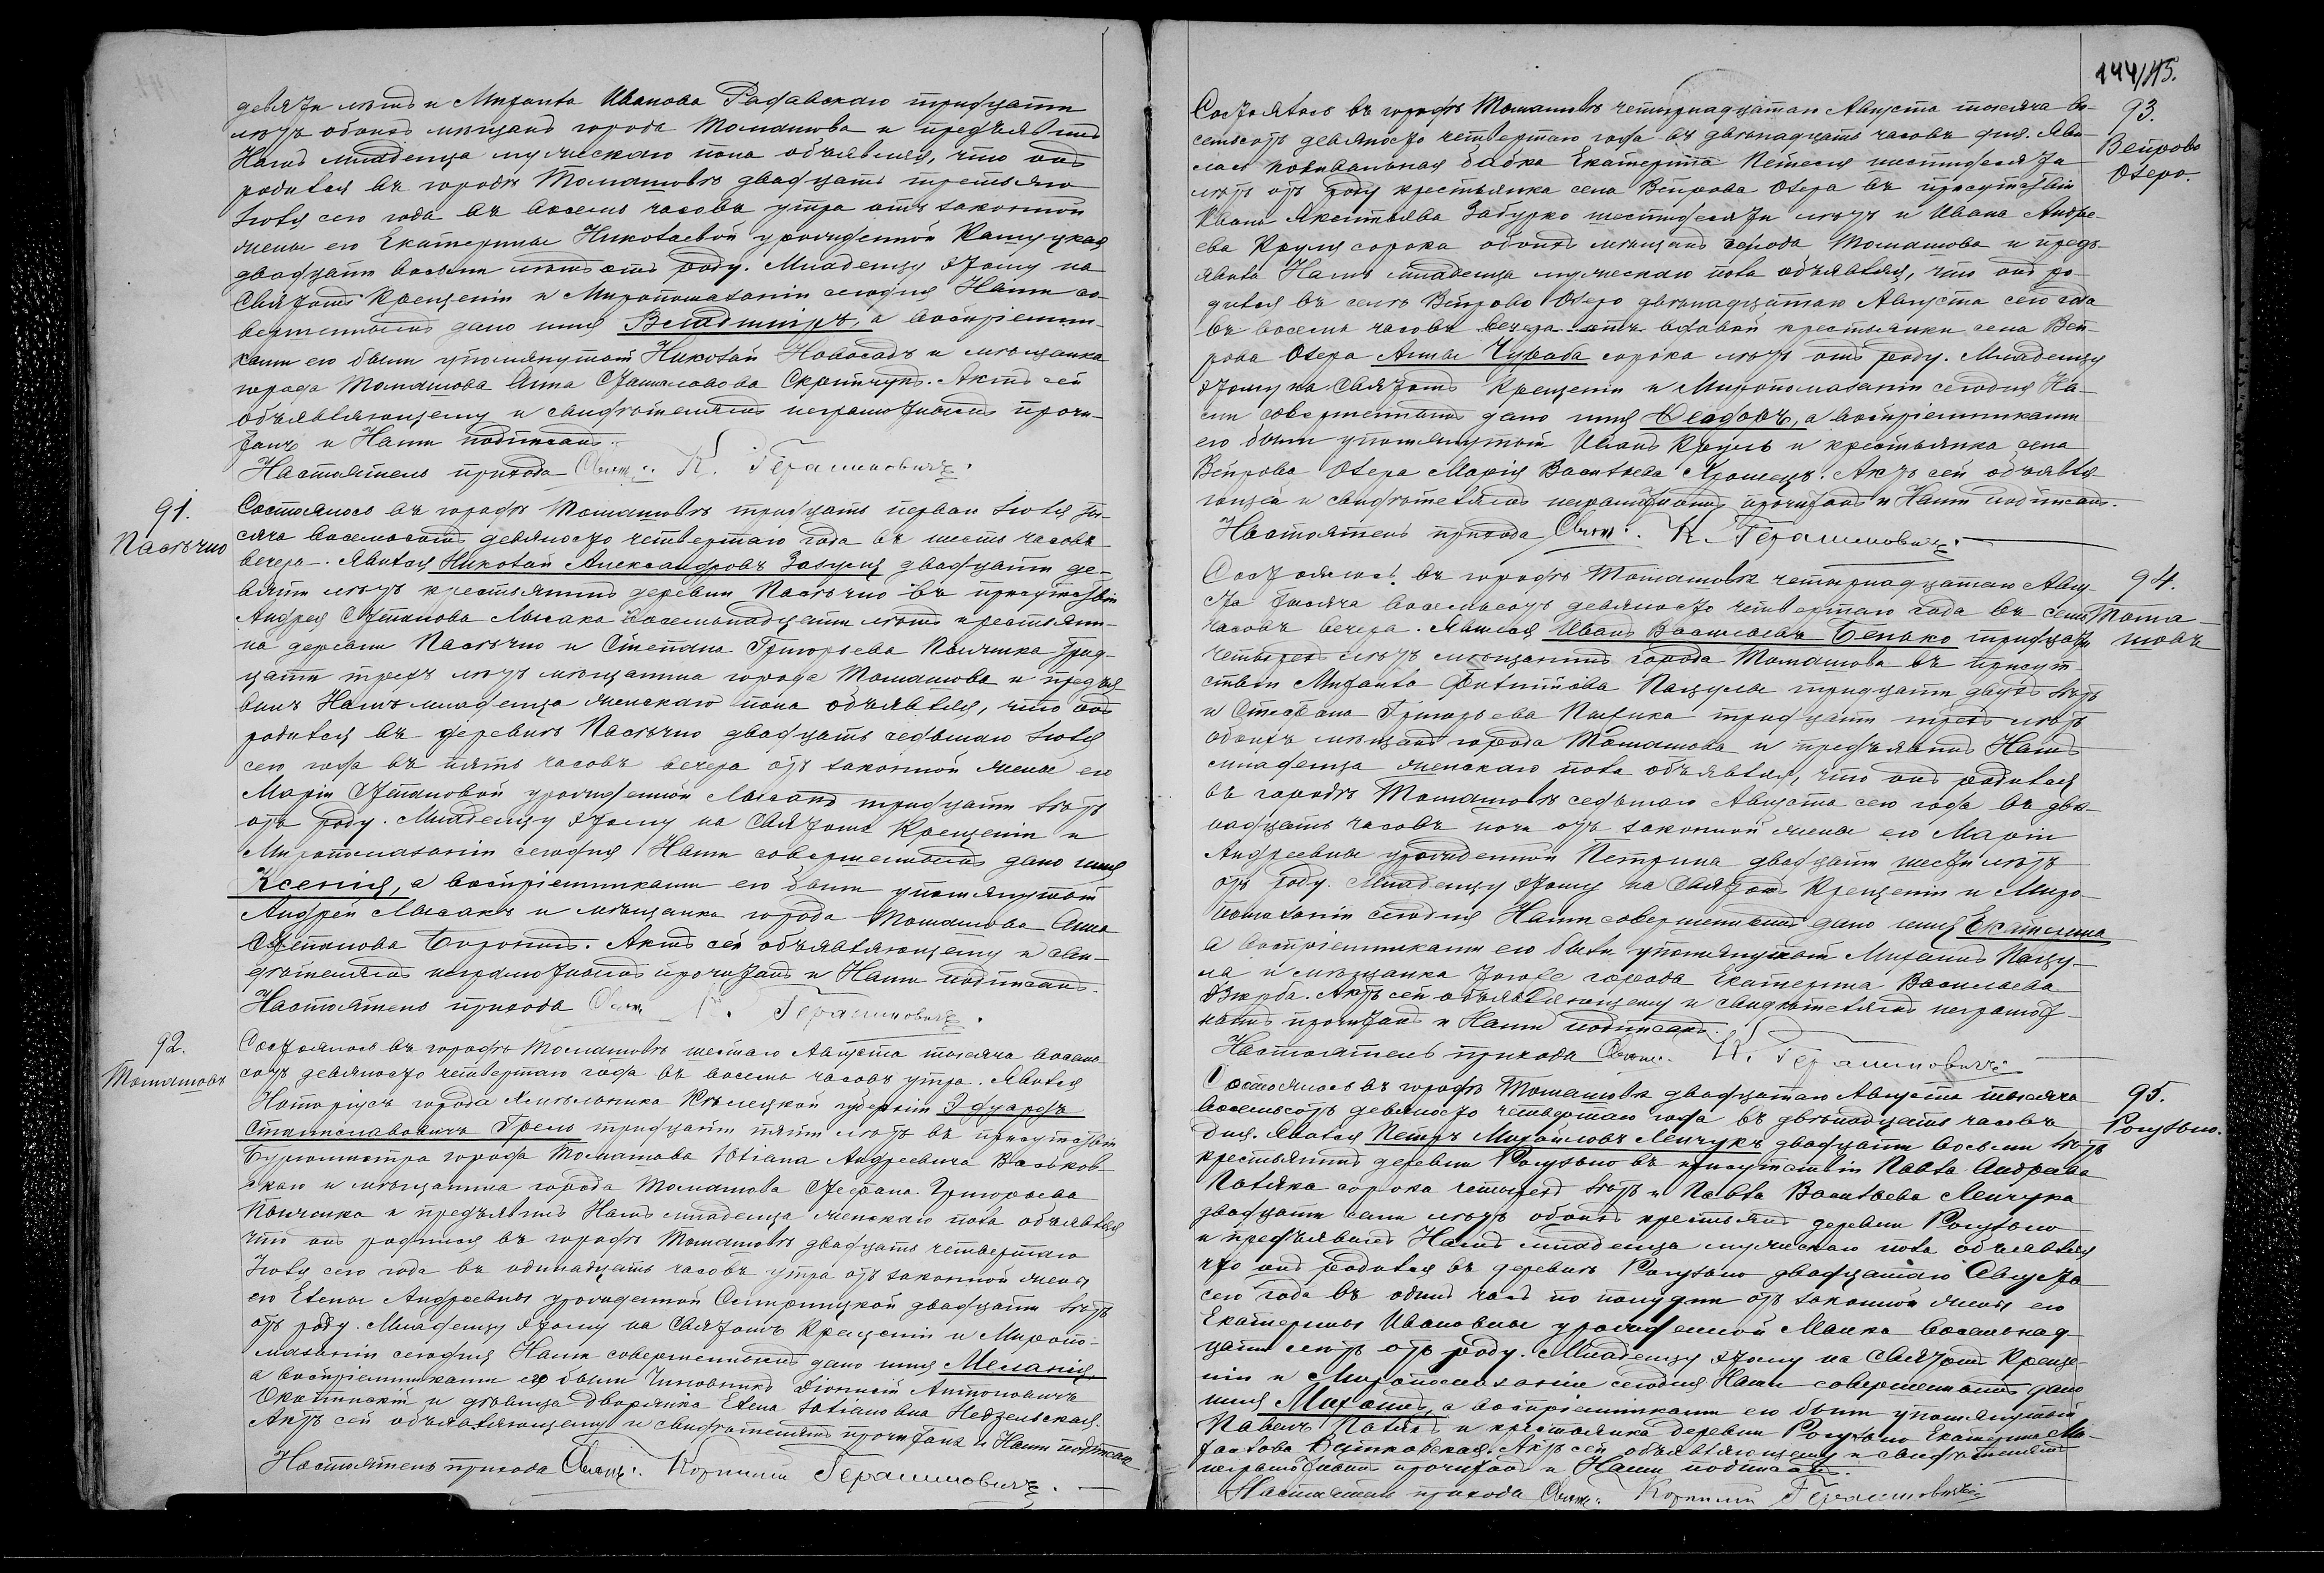 девяти летъ и Михаила Иванова Радавскаго тридцати
летъ обоихъ мѣщанъ города Томашова и предъявилъ
Намъ младенца мужескаго пола объявляя, что онъ
родился въ городѣ Томашовѣ двадцать третьяго
Іюля сего года въ восемь часовъ утра отъ законной
жены его Екатерины Николаевой урожденной
двадцати восьми лѣтъ отъ роду. Младенцу этому на
Святомъ Крещеніи и Миропомазаніи сегодня Нами со-
вершенныхъ дано имя Владиміръ, а воспріемни-
ками его были упомянутый Николай Новосадъ и мѣщанка
города Томашова Анна Скрипчукъ. Актъ сей
объявляющему и свидѣтелямъ неграмотнымъ прочи-
танъ и Нами подписанъ.
Настоятель прихода Свящ: К. Герасимовичъ.
91.
Пасѣчно
Состоялось въ городѣ Томашовѣ тридцать перваго Іюля ты-
сяча восемьсотъ девяносто четвертаго года въ шесть часовъ
вечера. Явился Николай Александровъ двадцати де-
вяти лѣтъ крестьянинъ деревни Пасѣчно въ присутствіи
Андрея Степанова Лысака восемьнадцати лѣтъ крестьяни-
на деревни Пасѣчно и Стефана Григорьева трид-
цати трехъ лѣтъ мѣщанина города Томашова и предъя-
вилъ Намъ младенца женскаго пола объявляя, что онъ
родился въ деревнѣ Пасѣчно двадцать седьмаго Іюля
сего года въ пять часовъ вечера отъ законной жены его
Маріи Степановой урожденной Лысакъ тридцати лѣтъ
отъ роду. Младенцу этому на Святомъ Крещеніи и
Миропомазаніи сегодня Нами совершенныхъ дано имя
Ксенія, а воспріемниками его были упомянутый
Андрей Лысакъ и мѣщанка города Томашова Анна
Степанова. Актъ сей объявляющему и сви-
дѣтелямъ неграмотнымъ прочитанъ и Нами подписанъ.
Настоятель прихода Свящ К. Герасимовичъ.
92.
Томашовъ
Состоялось въ городѣ Томашовѣ шестаго Августа тысяча восемь-
сотъ девяносто четвертаго года въ восемь часовъ утра. Явился
Нотаріусъ города Хмѣльника Кѣлецкой губерніи Эдуардъ
Станиславовичъ тридцати пяти лѣтъ въ присутствіи
Бургомистра города Томашова Юліана Андреевича Вольков-
скаго и мѣщанина города Томашова Стефана Григорьева
и предъявилъ Намъ младенца женскаго пола объявляя
что онъ родился въ городѣ Томашовѣ двадцать четвертаго
Іюля сего года въ одинадцать часовъ утра отъ законной жены
его Елены Андреевны урожденной двадцати лѣтъ
отъ роду. Младенцу этому на Святомъ Крещеніи и Миропо-
мазаніи сегодня Нами совершенныхъ дано имя Меланія,
а воспріемниками его были Чиновникъ Діонисій Антоновичъ
и дѣвица дворянка Елена Недзельская.
Актъ сей объявляющему и свидѣтелямъ прочитанъ и Нами подписанъ
Настоятель прихода Свящ: Корнилій Герасимовичъ.
144/145.
Состоялось въ городѣ Томашовѣ четырнадцатаго Августа тысяча во-
семьсотъ девяносто четвертаго года въ двѣнадцать часовъ дня. Яви-
лася повивальная бабка Екатерина шестидесяти
лѣтъ отъ роду крестьянка села Вепрова Озера въ присутствіи
Ивана Забурко шестидесяти лѣтъ и Ивана Андре-
ева Круля сорока обоихъ мѣщанъ города Томашова и предъ-
явила Намъ младенца мужескаго пола объявляя, что онъ ро-
дился въ селѣ Вепрово Озеро двѣнадцатаго Августа сего года
въ восемь часовъ вечера отъ вдовой крестьянки села Веп-
рова Озера Анны сорока лѣтъ отъ роду. Младенцу
этому на Святомъ Крещеніи и Миропомазаніи сегодня На-
ми совершенныхъ дано имя Ѳеодоръ, а воспріемниками
его были упомянутый Иванъ Круль и крестьянка села
Вепрова Озера Марія Васильева. Актъ сей объявля-
ющей и свидѣтелямъ неграмотнымъ прочитанъ и Нами подписанъ.
Настоятель прихода Свящ: К. Герасимовичъ.
93.
Вепрово
Озеро.
Состоялось въ городѣ Томашовѣ четырнадцатаго Авгу-
ста тысяча восемьсотъ девяносто четвертаго года въ семь
часовъ вечера. Явился Иванъ Васильевъ Бенько тридцати
четырехъ лѣтъ мѣщанинъ города Томашова въ присут-
ствіи Михаила Филиппова Пацулы тридцати двухъ лѣтъ
и Стефана Григорьева тридцати трехъ лѣтъ
обоихъ мѣщанъ города Томашова и предъявилъ Намъ
младенца женскаго пола объявляя, что онъ родился
въ городѣ Томашовѣ седьмаго Августа сего года въ двѣ-
надцать часовъ ночи отъ законной жены его Маріи
Андреевны урожденной Петрина двадцати шести лѣтъ
отъ роду. Младенцу этому на Святомъ Крещеніи и Миро-
помазаніи сегодня Нами совершенныхъ дано имя
а воспріемниками его были упомянутый Михаилъ Пацу-
ла и мѣщанка того же города Екатерина Васильева
Актъ сей объявляющему и свидѣтелямъ неграмот-
нымъ прочитанъ и Нами подписанъ.
Настоятель прихода Свящ: К. Герасимовичъ.
94.
Тома-
шовъ
Состоялось въ городѣ Томашовѣ двадцатаго Августа тысяча
восемьсотъ девяносто четвертаго года въ двѣнадцать часовъ
дня. Явился Петръ Михайловъ Ленчукъ двадцати восьми лѣтъ
крестьянинъ деревни Рогузьно въ присутствіи Павла Андреева
сорока четырехъ лѣтъ и Павла Васильева Ленчука
двадцати семи лѣтъ обоихъ крестьянъ деревни Рогузьно
и предъявилъ Намъ младенца мужескаго пола объявляя
что онъ родился въ деревнѣ Рогузьно двадцатаго Августа
сего года въ одинъ часъ по полудни отъ законной жены его
Екатерины Ивановны урожденной восемьнад-
цати лѣтъ отъ роду. Младенцу этому на Святомъ Креще-
ніи и Миропомазаніи сегодня Нами совершенныхъ дано
имя Михаилъ, а воспріемниками его были упомянутый
Павелъ и крестьянка деревни Рогузьно Екатерина
Актъ сей объявляющему и свидѣтелямъ
неграмотнымъ прочитанъ и Нами подписанъ.
Настоятель прихода Свящ: Корнилій Герасимовичъ
95.
Рогузьно.